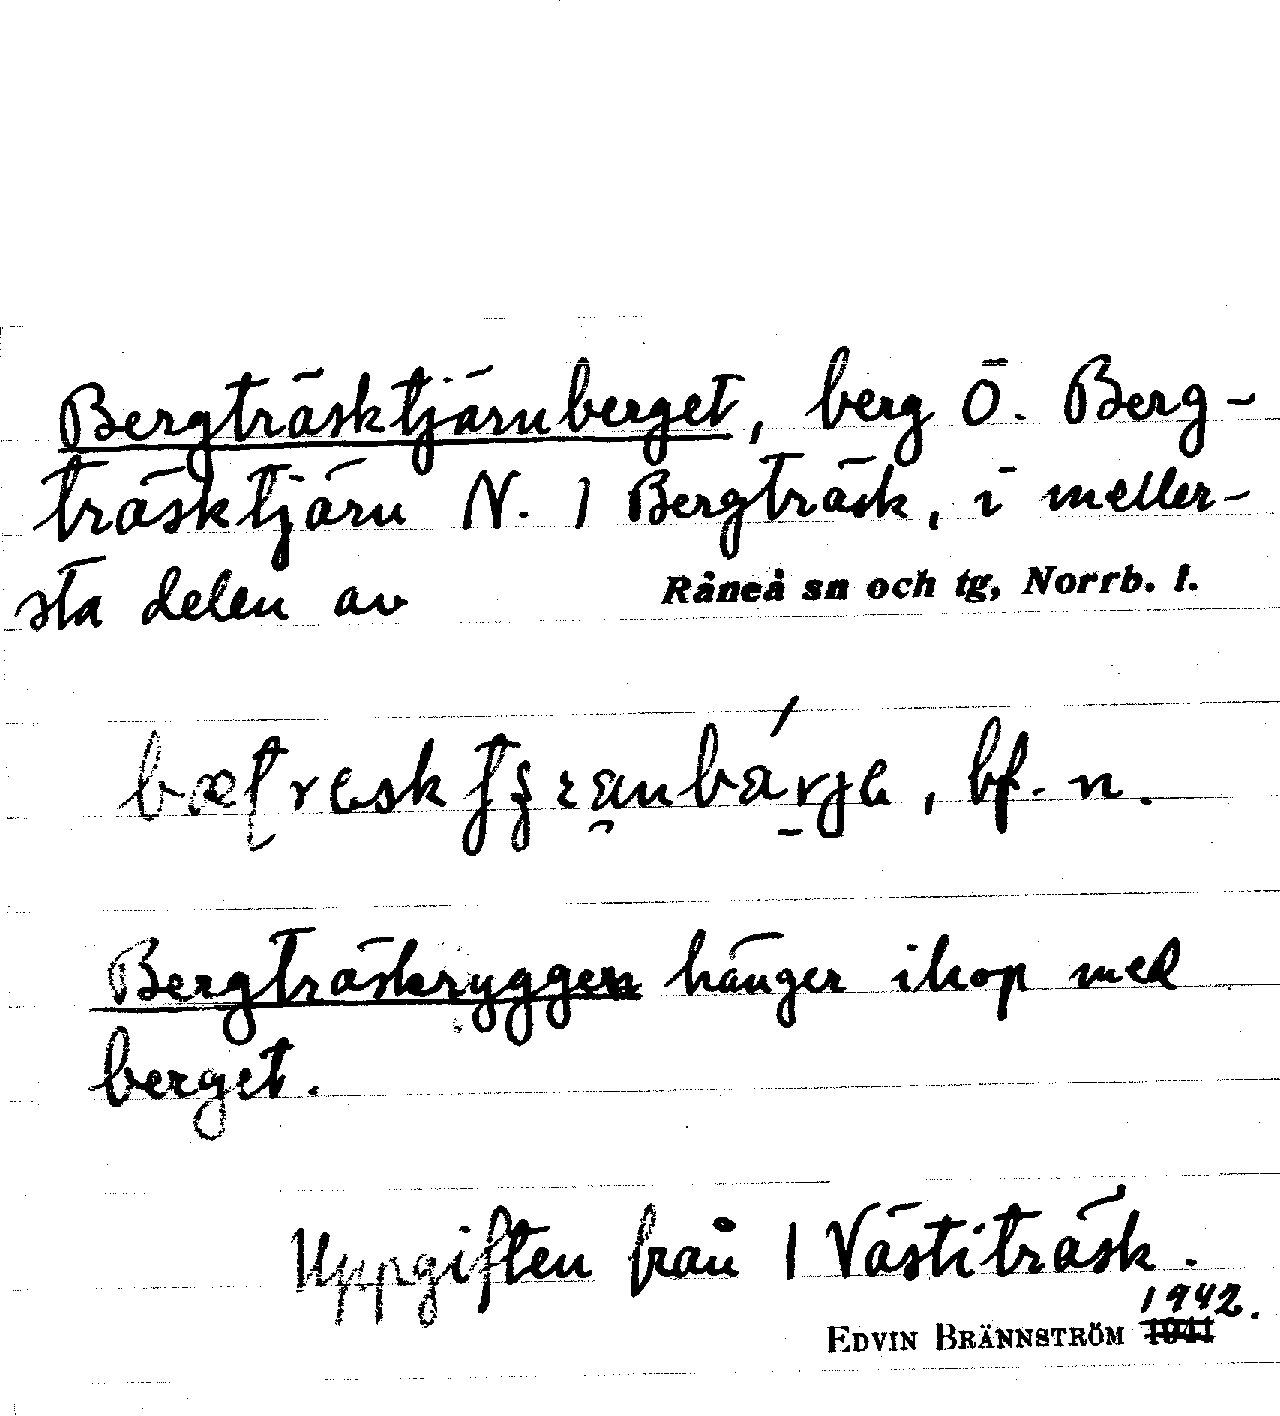 Bergträsktjärnberget, berg Ö. Berg-
träsktjärn N. 1 Bergträsk, i meller-
sta delen av Råneå sn och tg, Norrb. l.
bf. n.
Bergträskryggen hänger ihop med
berget.
Uppgiften från 1 Västiträsk.
1942.
EDVIN BRÄNNSTRÖM 1941